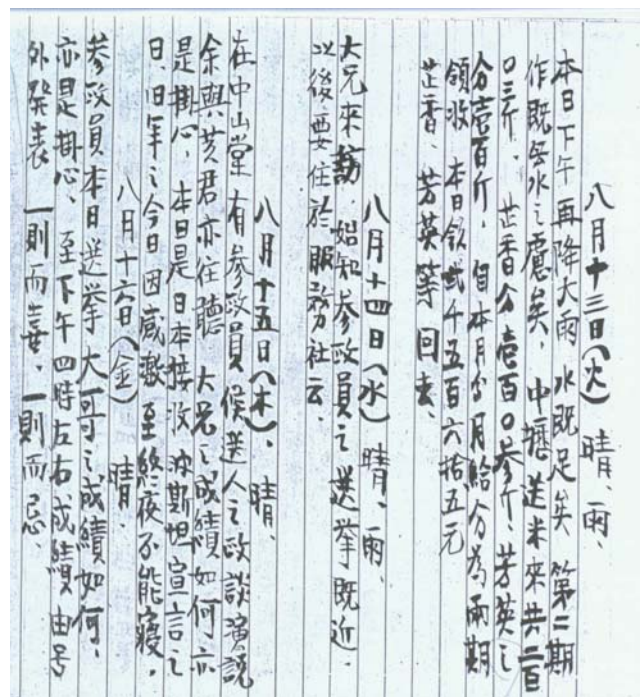 八月十三日(火) 晴、雨、
本日下午再降大雨 水既足矣 第二期
作既無水之慮矣、中攊送米來共二百
〇三斤、芷香分壹百〇參斤、芳英之
分壹百斤、自本月份月給分為兩期
領收 本日領弍千五百六拾五元
芷香、芳英等回去、
八月十四日(水) 晴、雨、
大兄來訪、始知參政員之選挙既近、
以後要住於服務社云、
八月十五日(木)、 晴、
在中山堂有參政員候選人之政談演説
余與黃君亦往聽 大兄之成績如何亦
是掛心、本日是日本接收波斯坦宣言之
日、旧年之今日因感激至終夜不能寢、
八月十六日(金) 晴、
參政員本日選挙 大可之成績如何、
亦是掛心、至下午四時左右成績由号
外発表 一則而喜、一則而忌